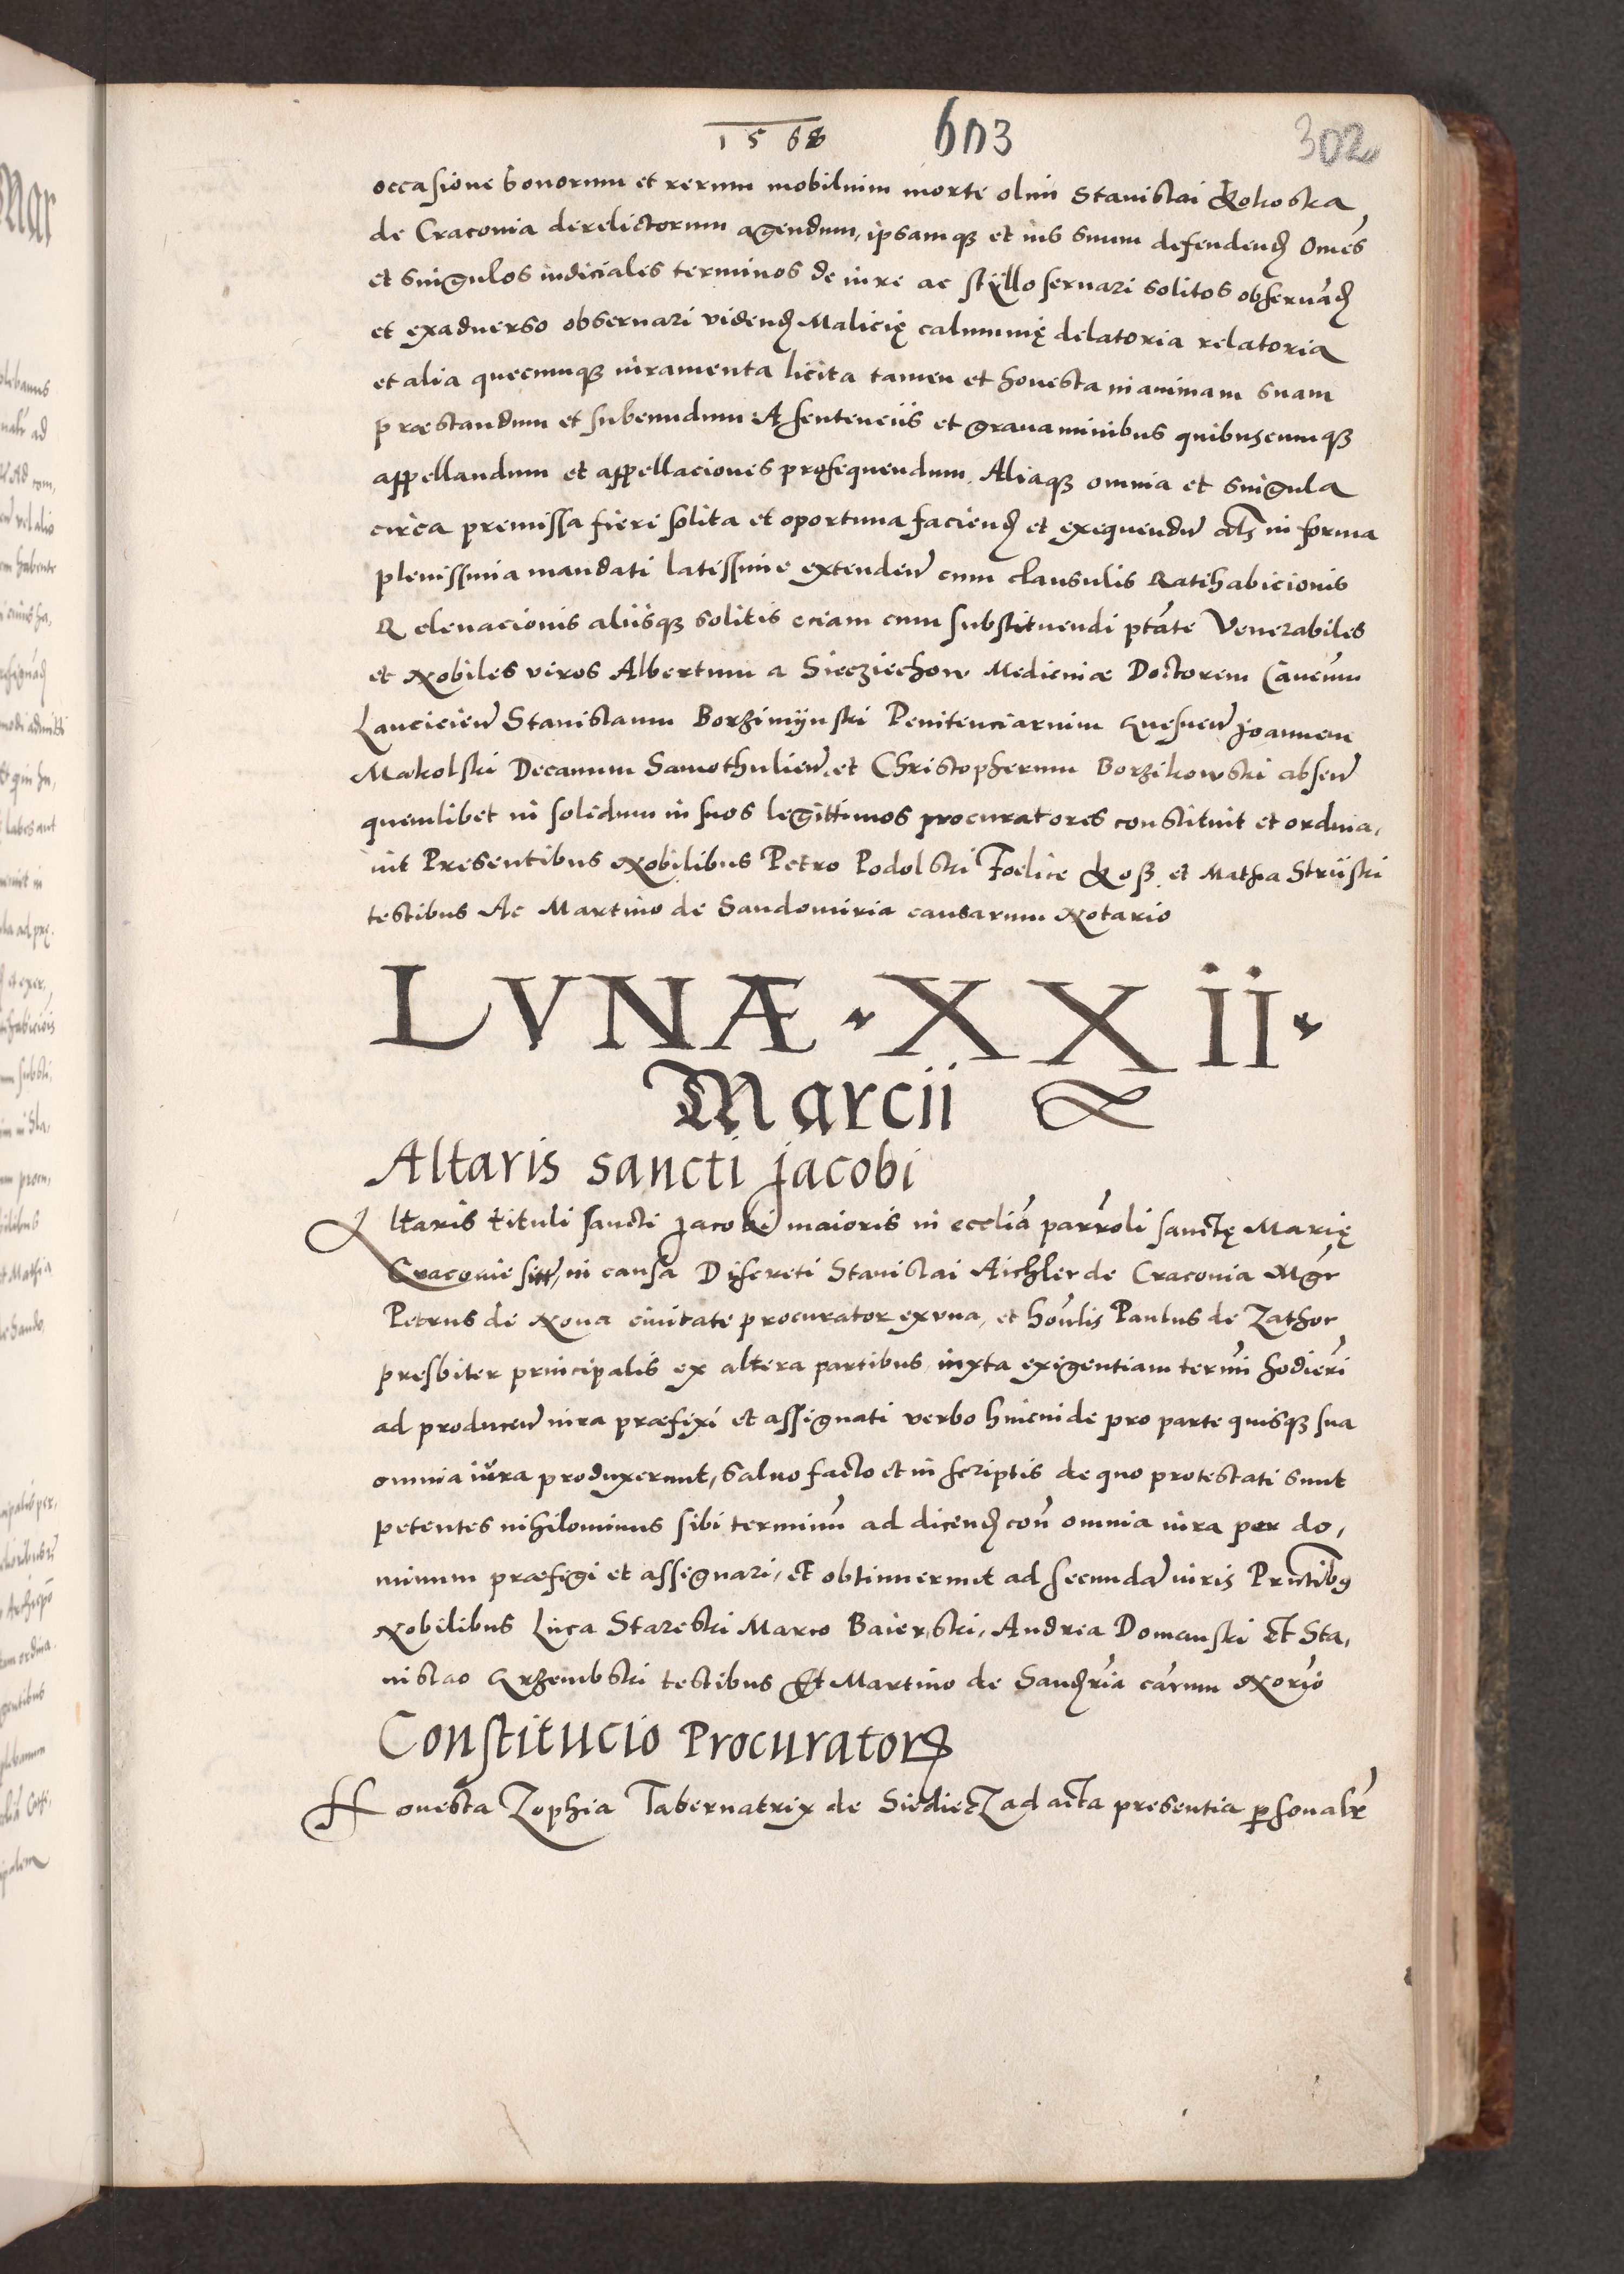 1568 603 302
occasione bonorum et rerum mobilium morte olim Stanislai Kokoska
de Craconia derelictorum agendum, ipsamqꝫ et ius suum defendenđ Omēs
et singulos iudiciales terminos de iure ac stÿllo seruari solitos obseruāđ
et exaduerso obseruari videnđ Malicię calumnię delatoria relatoria
et alia quecumqꝫ iuramenta licita tamen et honesta in animam suam
præstandum et subeundum A sentenciis et grauaminibus quibuscumqꝫ
appellandum et appellaciones prosequendum. Aliaqꝫ omnia et singula
circa premissa fieri solita et oportuna facienđ et exequendū als in forma
plenissima mandati latissime extendeñ cum clausulis Ratihabicionis
Releuacionis aliisqꝫ solitis eciam cum substituendi ptāte Venerabiles
et Nobiles viros Albertum a Sieciechow Medicinæ Doctorem Canēum
Lancicieñ Stanislaum Borzimÿnski Penitenciarium Gnesneñ Joannem
Makolski Decanum Samothulieñ et Christopherum Borzikowski abseñ
quemlibet in solidum in suos legittimos procuratores constituit et ordina,
uit Presentibus Nobilibus Petro Podolski Foelice Koß et Mathia Strÿiski
testibus Ac Martino de Sandomiria causarum Notario
LVNÆ · XXII ·
Marcii
Altaris sancti Jacobi
Altaris tituli sancti Jacobi maioris in ecclīa parrōli sanctę Marię
Cracouie sitī, in causa Discreti Stanislai Aichler de Cracouia Mgr
Petrus de Noua ciuitate procurator ex vna, et honīlis Paulus de Zathor
presbiter principalis ex altera partibus iuxta exigentiam termīni hodierī
ad produceñ iura præfixi et assignati verbo hincinde pro parte quisqꝫ sua
omnia iŭra produxerunt, saluo facto et in scriptis de quo protestati sunt
petentes nihilominus sibi terminū ad dicenđ coñ omnia iura per do,
minum præfigi et assignari, et obtinuerunt ad secundā iuris Prntībꝰ
Nobilibus Luca Stareski Marco Baierski, Andrea Domanski Et Sta,
nislao Krzembski testibus Et Martino de Sanđria cārum Norīo
Constitucio Procuratorꝝ
Honesta Zophia Tabernatrix de Siediecz ad acta presentia ꝑsonalr̄